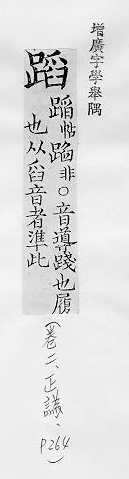 增廣字學舉隅
蹈
帖非○音導踐也履
也从舀音者準此
(卷二、正譌、P264)